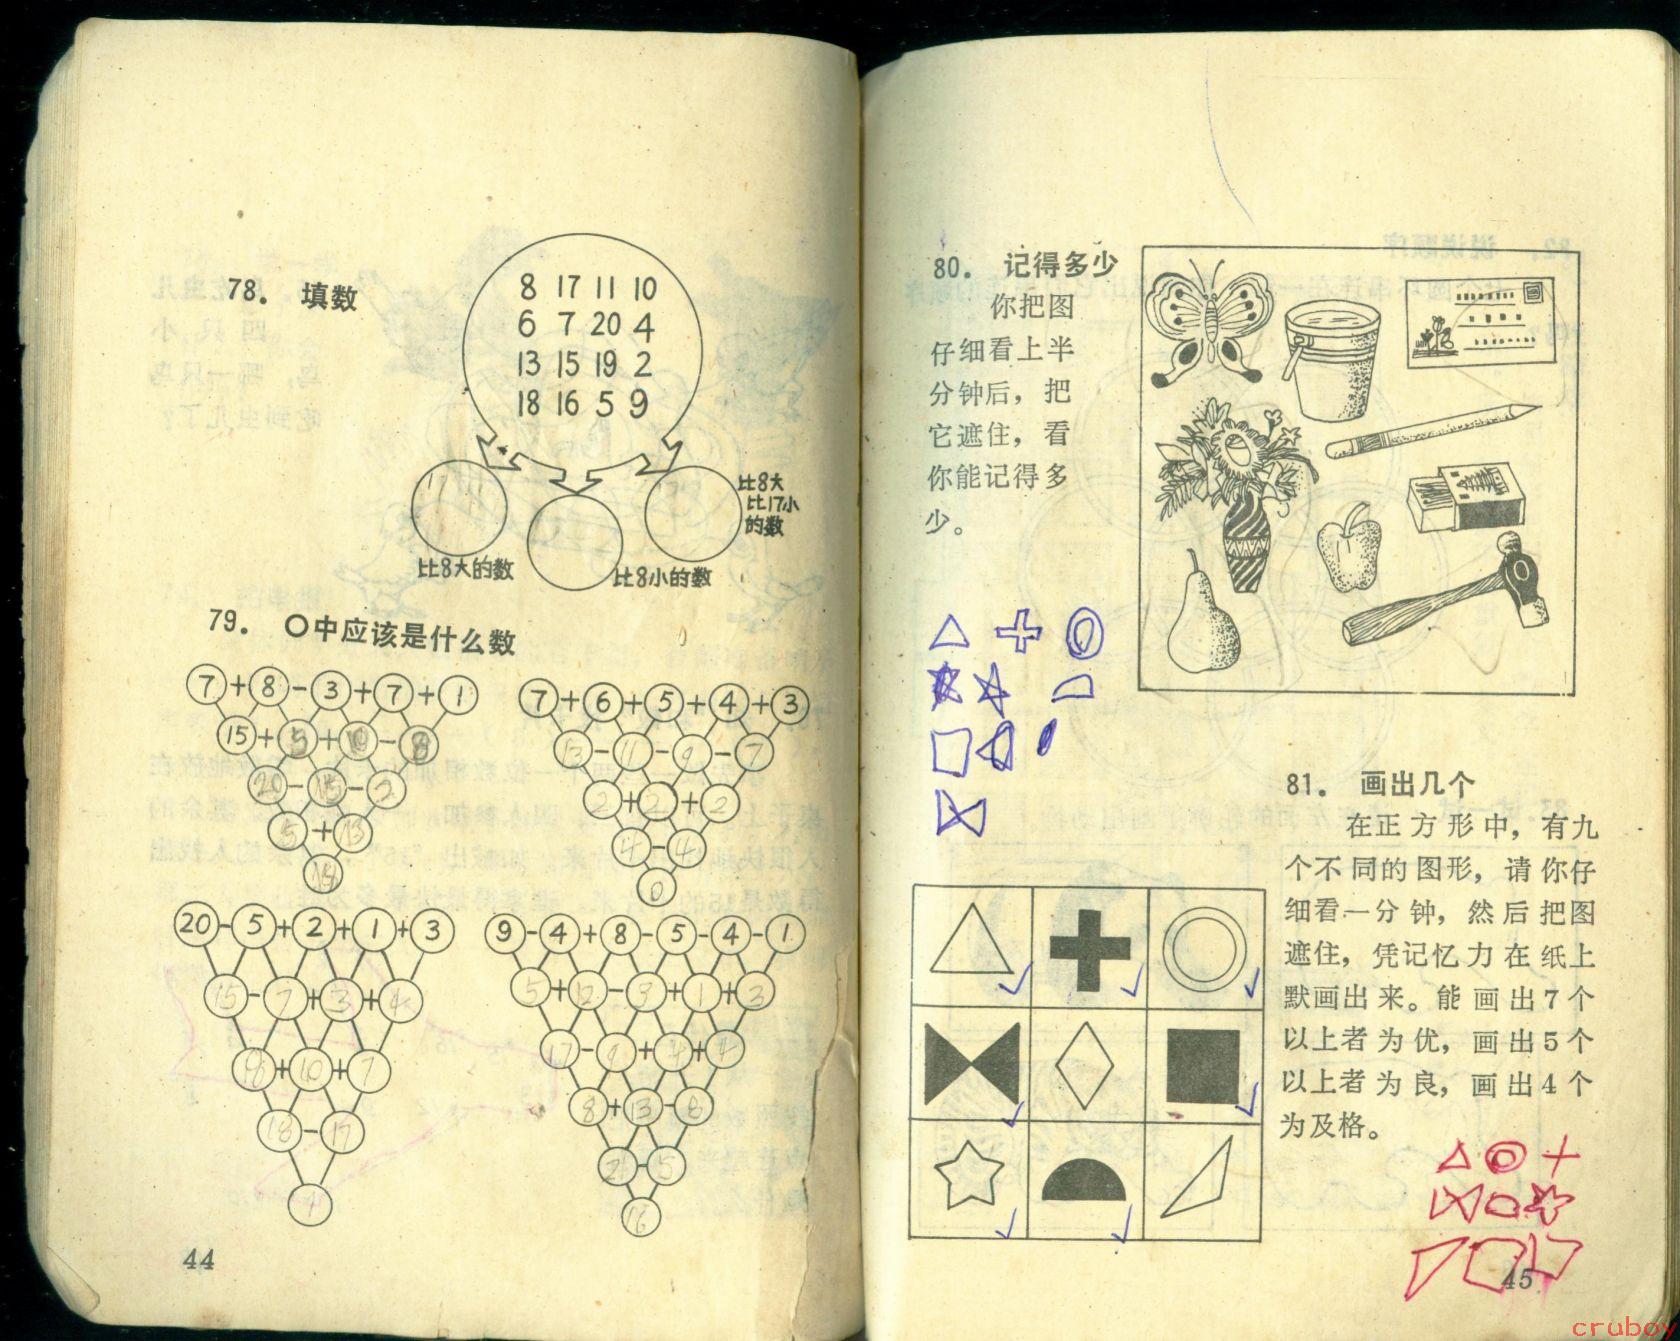 78. 填数
8 17 11 10
6 7 20 4
13 15 19 2
18 16 5 9
比8大的数
比8小的数
比8大
比17小
的数
79. ○中应该是什么数
7+8-3+7+1
15+5+10-8
20-15-2
5+13
18
7+6+5+4+3
13-11-9-7
2+2+2
4-4
0
20-5+2+1+3
15-7+3+4
8+10+7
18-17
1
9-4+8-5-4-1
5+12-3+1+3
17-9+4+4
8+13-8
21-5
16
44
80. 记得多少
你把图
仔细看上半
分钟后，把
它遮住，看
你能记得多
少。
81. 画出几个
在正方形中，有九
个不同的图形，请你仔
细看一分钟，然后把图
遮住，凭记忆力在纸上
默画出来。能画出7个
以上者为优，画出5个
以上者为良，画出4个
为及格。
45
cruboy